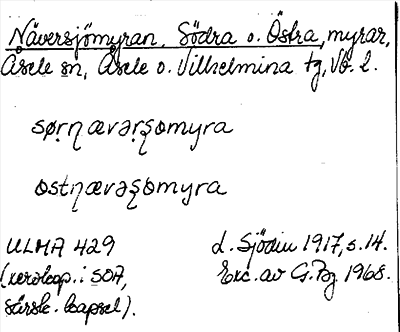 Näversjömyran, Södra o. Östra, myrar,
Åsele sn, Åsele o. Vilhelmina tg, Vb. l.
sørɳævəʂomyra
ostɳævəʂomyra
ULMA 429 d. Sjödin 1917, s. 14.
(xerokop. i SOA, Exc. av G. Bg 1968.
särsk. kapsel).